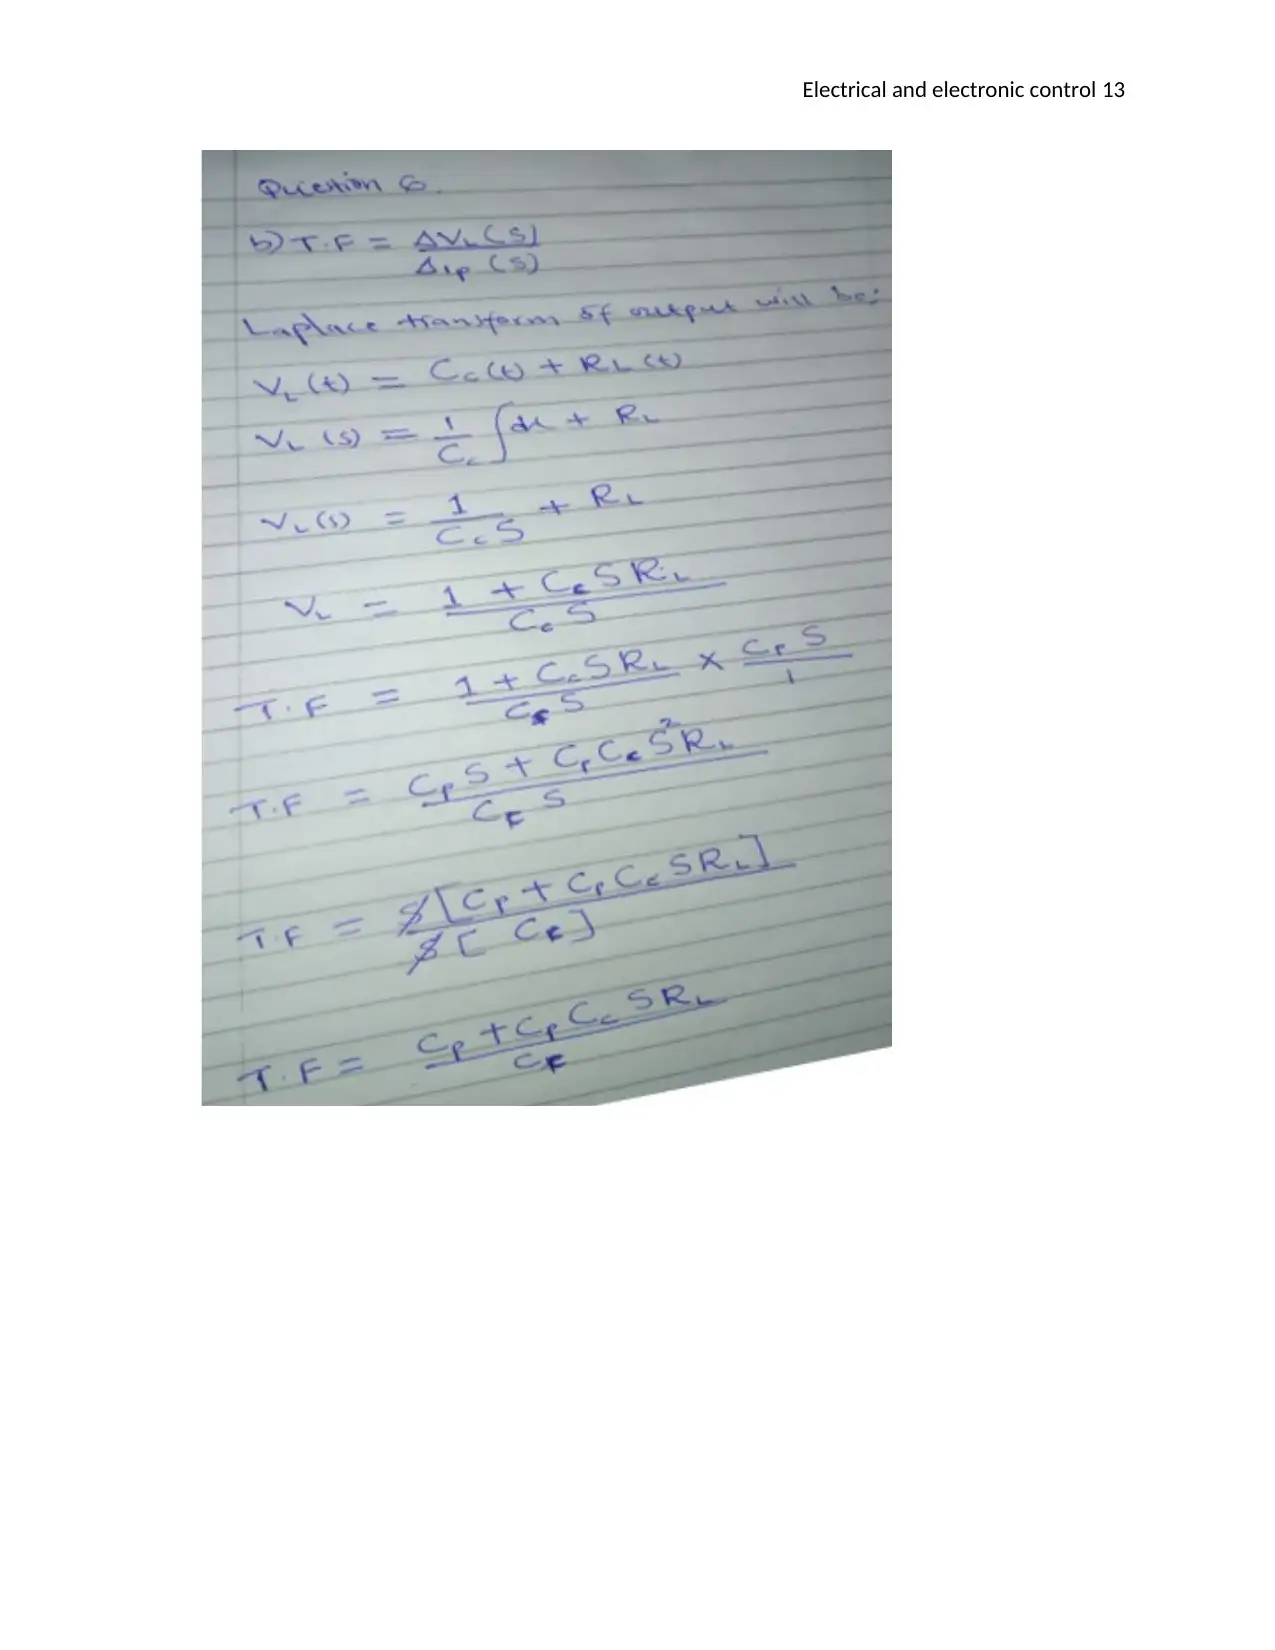 Electrical and electronic control 13
Question 6.
b) T.F = ΔVL(s)
Δip (s)
Laplace transform of output will be:
VL (t) = Cc(t) + RL (t)
VL (s) = 1/Cc ∫ + RL
VL(s) = 1/CcS + RL
VL = 1 + CcSRL / CcS
T.F = 1 + CcSRL / CFS × CpS / 1
T.F = CpS + CpCcS²RL / CFS
T.F = S[Cp + CpCcSRL] / S[CF]
T.F = Cp + CpCcSRL / CF